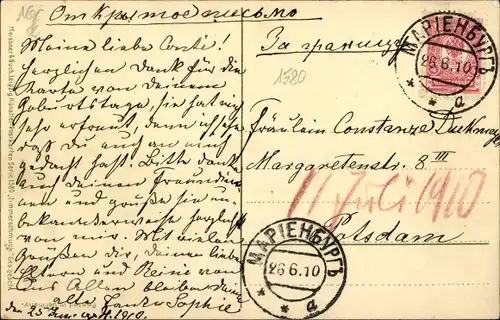 Открытое письмо
За границу
Meine liebe Conti!
Herzlichen Dank für die
Karte von deinem
Geburtstage, sie hat mich
sehr erfreut, denn ich sehe
daß du auch an mich
gedacht hast. Bitte danke
auch deinen Freundinnen
und grüße sie un-
bekannterweise herzlich
von mir. Mit vielen
Grüßen dir, deinen lieben
Eltern und Reine von
uns Allen bleibe deine
alte Tante Sophie
den 25 Juni 1910.
1520
МАРІЕНБУРГЪ
26.6.10
a
Fräulein Constanze
Margaretenstr. 8 III
11 Juli 1910
Potsdam
МАРІЕНБУРГЪ
26.6.10
a